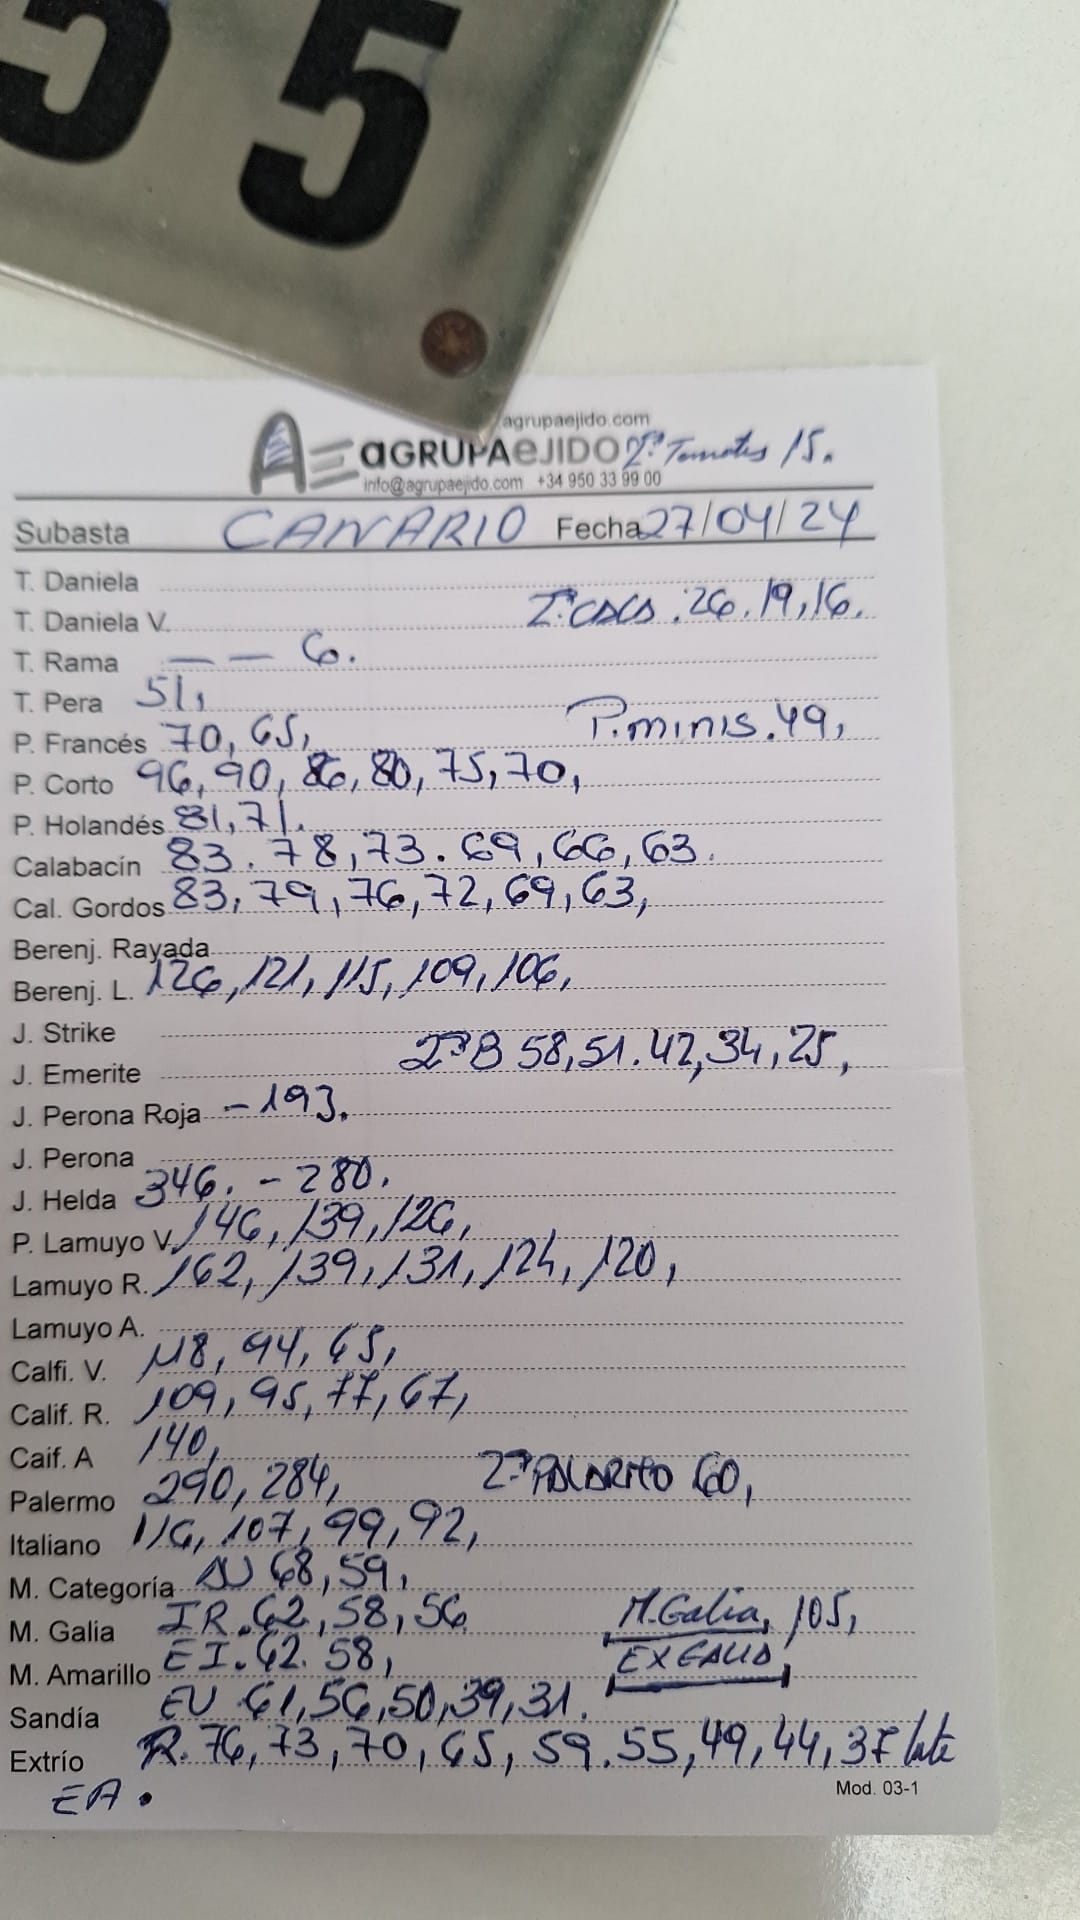 55
agrupaejido.com
AE aGRUPAeJIDO 2ª Tomates 15.
info@agrupaejido.com +34 950 33 99 00
Subasta CANARIO Fecha 27/04/24
T. Daniela
T. Daniela V. 2ª CACA. 26. 19, 16.
T. Rama — — 6.
T. Pera 51,
P. Francés 70, 65, P. minis. 49,
P. Corto 96, 90, 86, 80, 75, 70,
P. Holandés 81, 71.
Calabacín 83. 78, 73. 69, 66, 63.
Cal. Gordos 83, 79, 76, 72, 69, 63,
Berenj. Rayada
Berenj. L. 126, 121, 115, 109, 106,
J. Strike
J. Emerite 2ª B 58, 51. 42, 34, 25,
J. Perona Roja - 193.
J. Perona
J. Helda 346. - 280.
P. Lamuyo V. 146, 139, 126,
Lamuyo R. 162, 139, 131, 124, 120,
Lamuyo A.
Calfi. V. 118, 94, 65,
Calif. R. 109, 95, 77, 67,
Caif. A 140,
Palermo 290, 284, 2ª 60,
Italiano 116, 107, 99, 92,
M. Categoría AU 68, 59,
M. Galia IR. 62, 58, 56 M. Galia, 105,
M. Amarillo EI. 62. 58, EXGALIA
Sandía EU 61, 56, 50, 39, 31.
Extrío R. 76, 73, 70, 65, 59. 55, 49, 44, 37
EA.
Mod. 03-1